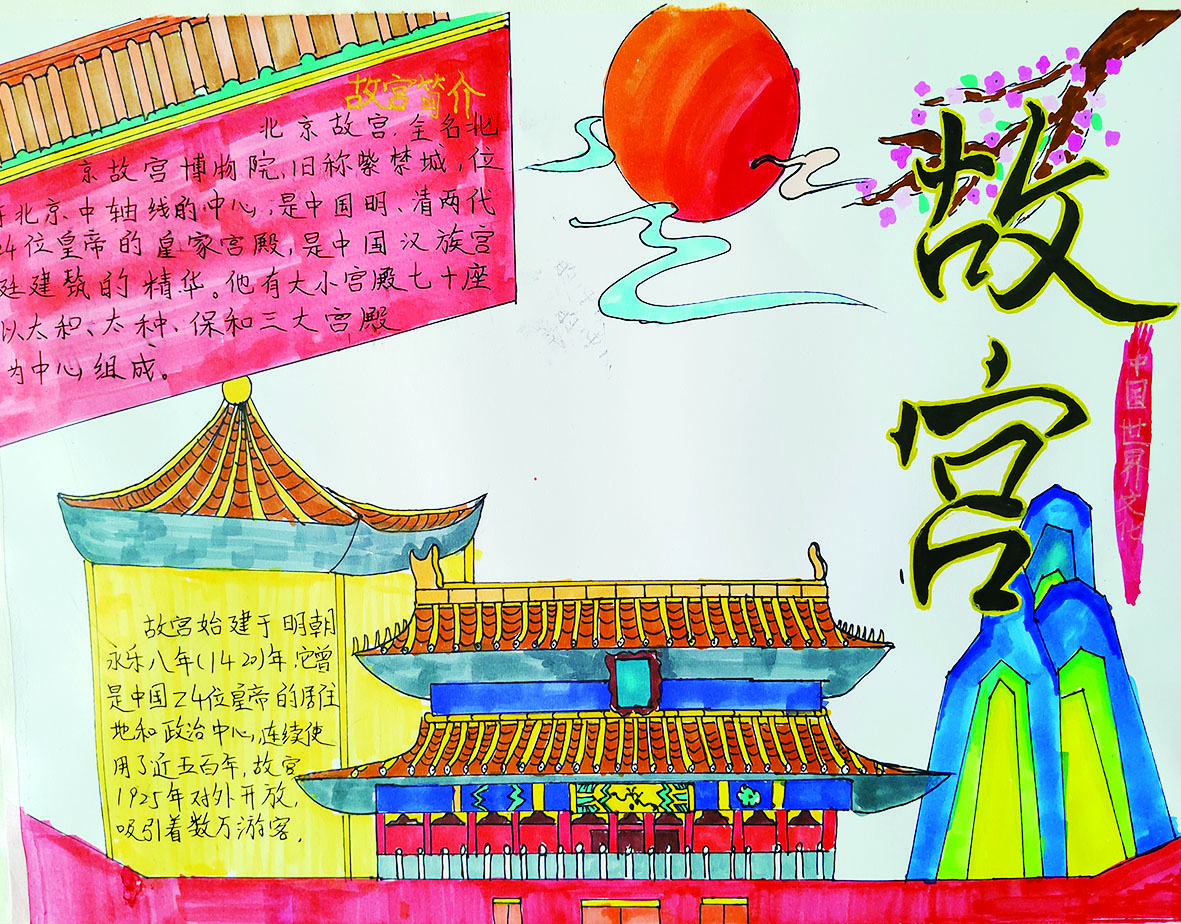 故宫简介
北京故宫,全名北
京故宫博物院,旧称紫禁城,位
于北京中轴线的中心,是中国明、清两代
24位皇帝的皇家宫殿,是中国汉族宫
廷建筑的精华。他有大小宫殿七十座
以太和、太种、保和三大宫殿
为中心组成。
故宫
中国世界文化
故宫始建于明朝
永乐八年(1420)年.它曾
是中国24位皇帝的居住
地和政治中心,连续使
用了近五百年,故宫
1925年对外开放,
吸引着数万游客.